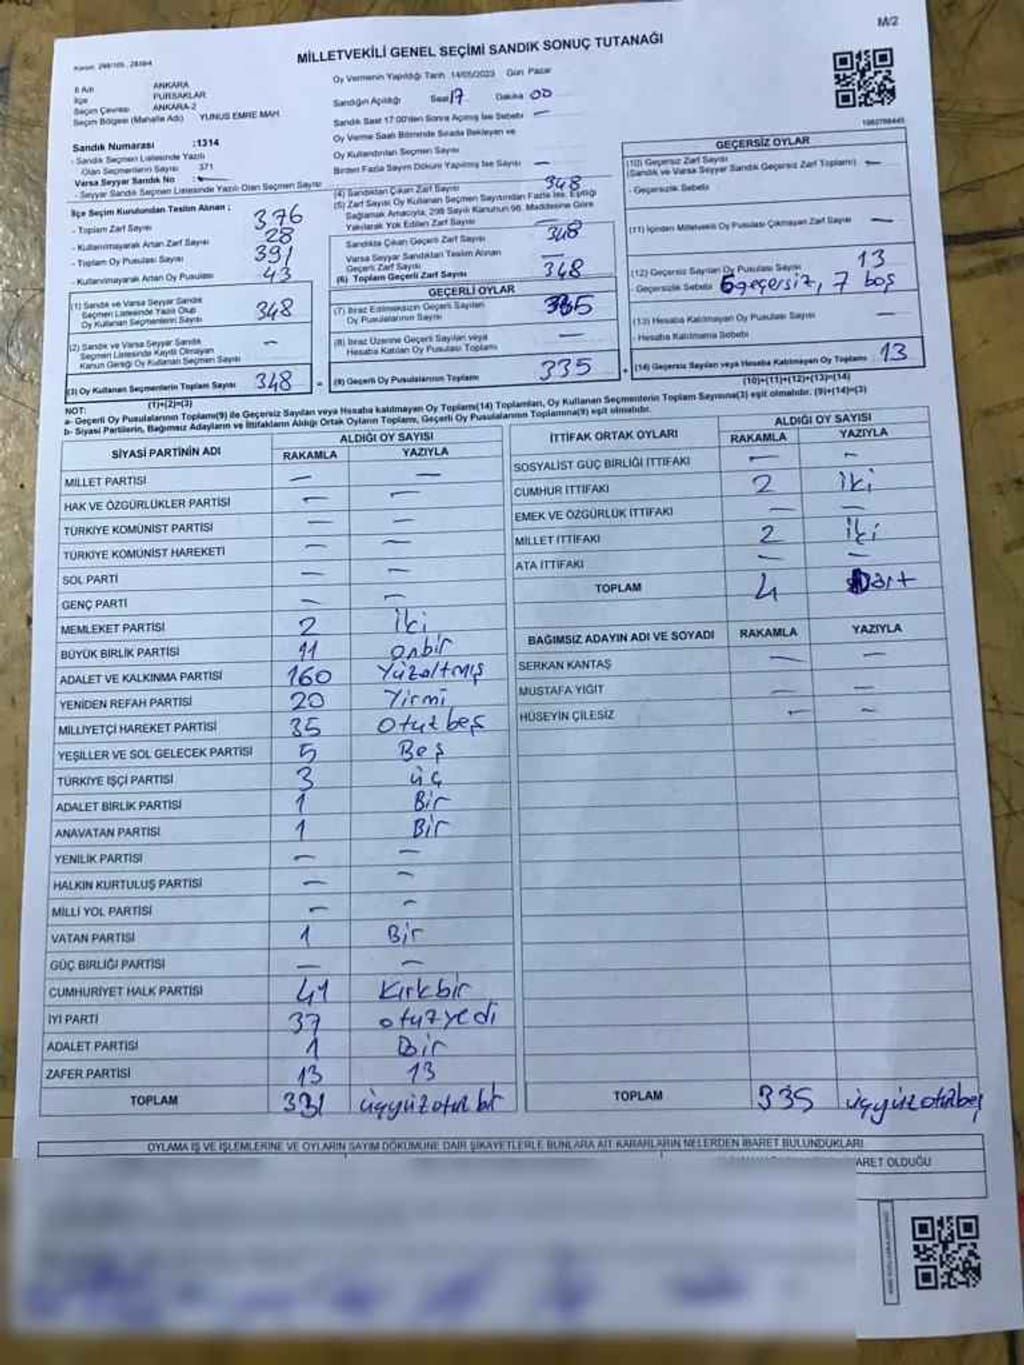 M/2
MİLLETVEKİLİ GENEL SEÇİMİ SANDIK SONUÇ TUTANAĞI
İl Adı ANKARA
İlçe PURSAKLAR
Seçim Çevresi ANKARA-2
Seçim Bölgesi (Mahalle Adı) YUNUS EMRE MAH.
Oy Vermenin Yapıldığı Tarih 14/05/2023 Gün Pazar
Sandığın Açıldığı Saat 17 Dakika 00
Sandık Saat 17:00'den Sonra Açılmış İse Sebebi —
Oy Verme Saati Bitiminde Sırada Bekleyen ve
Oy Kullandırılan Seçmen Sayısı
Birden Fazla Sayım Döküm Yapılmış İse Sayısı —
Sandık Numarası :1314
- Sandık Seçmen Listesinde Yazılı
Olan Seçmenlerin Sayısı 371
Varsa Seyyar Sandık No : —
- Seyyar Sandık Seçmen Listesinde Yazılı Olan Seçmen Sayısı
İlçe Seçim Kurulundan Teslim Alınan ;
- Toplam Zarf Sayısı 376
- Kullanılmayarak Artan Zarf Sayısı 28
- Toplam Oy Pusulası Sayısı 391
- Kullanılmayarak Artan Oy Pusulası 43
(1) Sandık ve Varsa Seyyar Sandık
Seçmen Listesinde Yazılı Olup
Oy Kullanan Seçmenlerin Sayısı 348
(2) Sandık ve Varsa Seyyar Sandık
Seçmen Listesinde Kayıtlı Olmayan
Kanun Gereği Oy Kullanan Seçmen Sayısı —
(3) Oy Kullanan Seçmenlerin Toplam Sayısı 348
(1)+(2)=(3)
(4) Sandıktan Çıkan Zarf Sayısı 348
(5) Zarf Sayısı Oy Kullanan Seçmen Sayısından Fazla İse, Eşitliği
Sağlamak Amacıyla, 298 Sayılı Kanunun 98. Maddesine Göre
Yakılarak Yok Edilen Zarf Sayısı —
Sandıkta Çıkan Geçerli Zarf Sayısı 348
Varsa Seyyar Sandıktan Teslim Alınan
Geçerli Zarf Sayısı —
(6) Toplam Geçerli Zarf Sayısı 348
GEÇERLİ OYLAR
(7) İtiraz Edilmeksizin Geçerli Sayılan
Oy Pusulalarının Sayısı 335
(8) İtiraz Üzerine Geçerli Sayılan veya
Hesaba Katılan Oy Pusulası Toplamı —
(9) Geçerli Oy Pusulalarının Toplamı 335
GEÇERSİZ OYLAR
(10) Geçersiz Zarf Sayısı
(Sandık ve Varsa Seyyar Sandık Geçersiz Zarf Toplamı) —
- Geçersizlik Sebebi
(11) İçinden Milletvekili Oy Pusulası Çıkmayan Zarf Sayısı —
(12) Geçersiz Sayılan Oy Pusulası Sayısı 13
- Geçersizlik Sebebi 6 geçersiz, 7 boş
(13) Hesaba Katılmayan Oy Pusulası Sayısı —
- Hesaba Katılmama Sebebi
(14) Geçersiz Sayılan veya Hesaba Katılmayan Oy Pusulası Toplamı 13
(10)+(11)+(12)+(13)=(14)
NOT:
a- Geçerli Oy Pusulalarının Toplamı(9) ile Geçersiz Sayılan veya Hesaba katılmayan Oy Toplamı(14) Toplamları, Oy Kullanan Seçmenlerin Toplam Sayısına(3) eşit olmalıdır. (9)+(14)=(3)
b- Siyasi Partilerin, Bağımsız Adayların ve İttifakların Aldığı Ortak Oyların Toplamı, Geçerli Oy Pusulalarının Toplamına(9) eşit olmalıdır.
SİYASİ PARTİNİN ADI ALDIĞI OY SAYISI
RAKAMLA YAZIYLA
MİLLET PARTİSİ — —
HAK VE ÖZGÜRLÜKLER PARTİSİ — —
TÜRKİYE KOMÜNİST PARTİSİ — —
TÜRKİYE KOMÜNİST HAREKETİ — —
SOL PARTİ — —
GENÇ PARTİ — —
MEMLEKET PARTİSİ 2 İki
BÜYÜK BİRLİK PARTİSİ 11 onbir
ADALET VE KALKINMA PARTİSİ 160 Yüzaltmış
YENİDEN REFAH PARTİSİ 20 Yirmi
MİLLİYETÇİ HAREKET PARTİSİ 35 Otuzbeş
YEŞİLLER VE SOL GELECEK PARTİSİ 5 Beş
TÜRKİYE İŞÇİ PARTİSİ 3 üç
ADALET BİRLİK PARTİSİ 1 Bir
ANAVATAN PARTİSİ 1 Bir
YENİLİK PARTİSİ — —
HALKIN KURTULUŞ PARTİSİ — —
MİLLİ YOL PARTİSİ — —
VATAN PARTİSİ 1 Bir
GÜÇ BİRLİĞİ PARTİSİ — —
CUMHURİYET HALK PARTİSİ 41 Kırkbir
İYİ PARTİ 37 otuzyedi
ADALET PARTİSİ 1 Bir
ZAFER PARTİSİ 13 13
TOPLAM 331 üçyüzotuzbir
İTTİFAK ORTAK OYLARI ALDIĞI OY SAYISI
RAKAMLA YAZIYLA
SOSYALİST GÜÇ BİRLİĞİ İTTİFAKI — —
CUMHUR İTTİFAKI 2 İki
EMEK VE ÖZGÜRLÜK İTTİFAKI — —
MİLLET İTTİFAKI 2 İki
ATA İTTİFAKI — —
TOPLAM 4 Dört
BAĞIMSIZ ADAYIN ADI VE SOYADI RAKAMLA YAZIYLA
SERKAN KANTAŞ — —
MUSTAFA YİĞİT — —
HÜSEYİN ÇİLESİZ — —
TOPLAM 335 üçyüzotuzbeş
OYLAMA İŞ VE İŞLEMLERİNE VE OYLARIN SAYIM DÖKÜMÜNE DAİR ŞİKAYETLERLE BUNLARA AİT KARARLARIN NELERDEN İBARET BULUNDUKLARI
ARET OLDUĞU